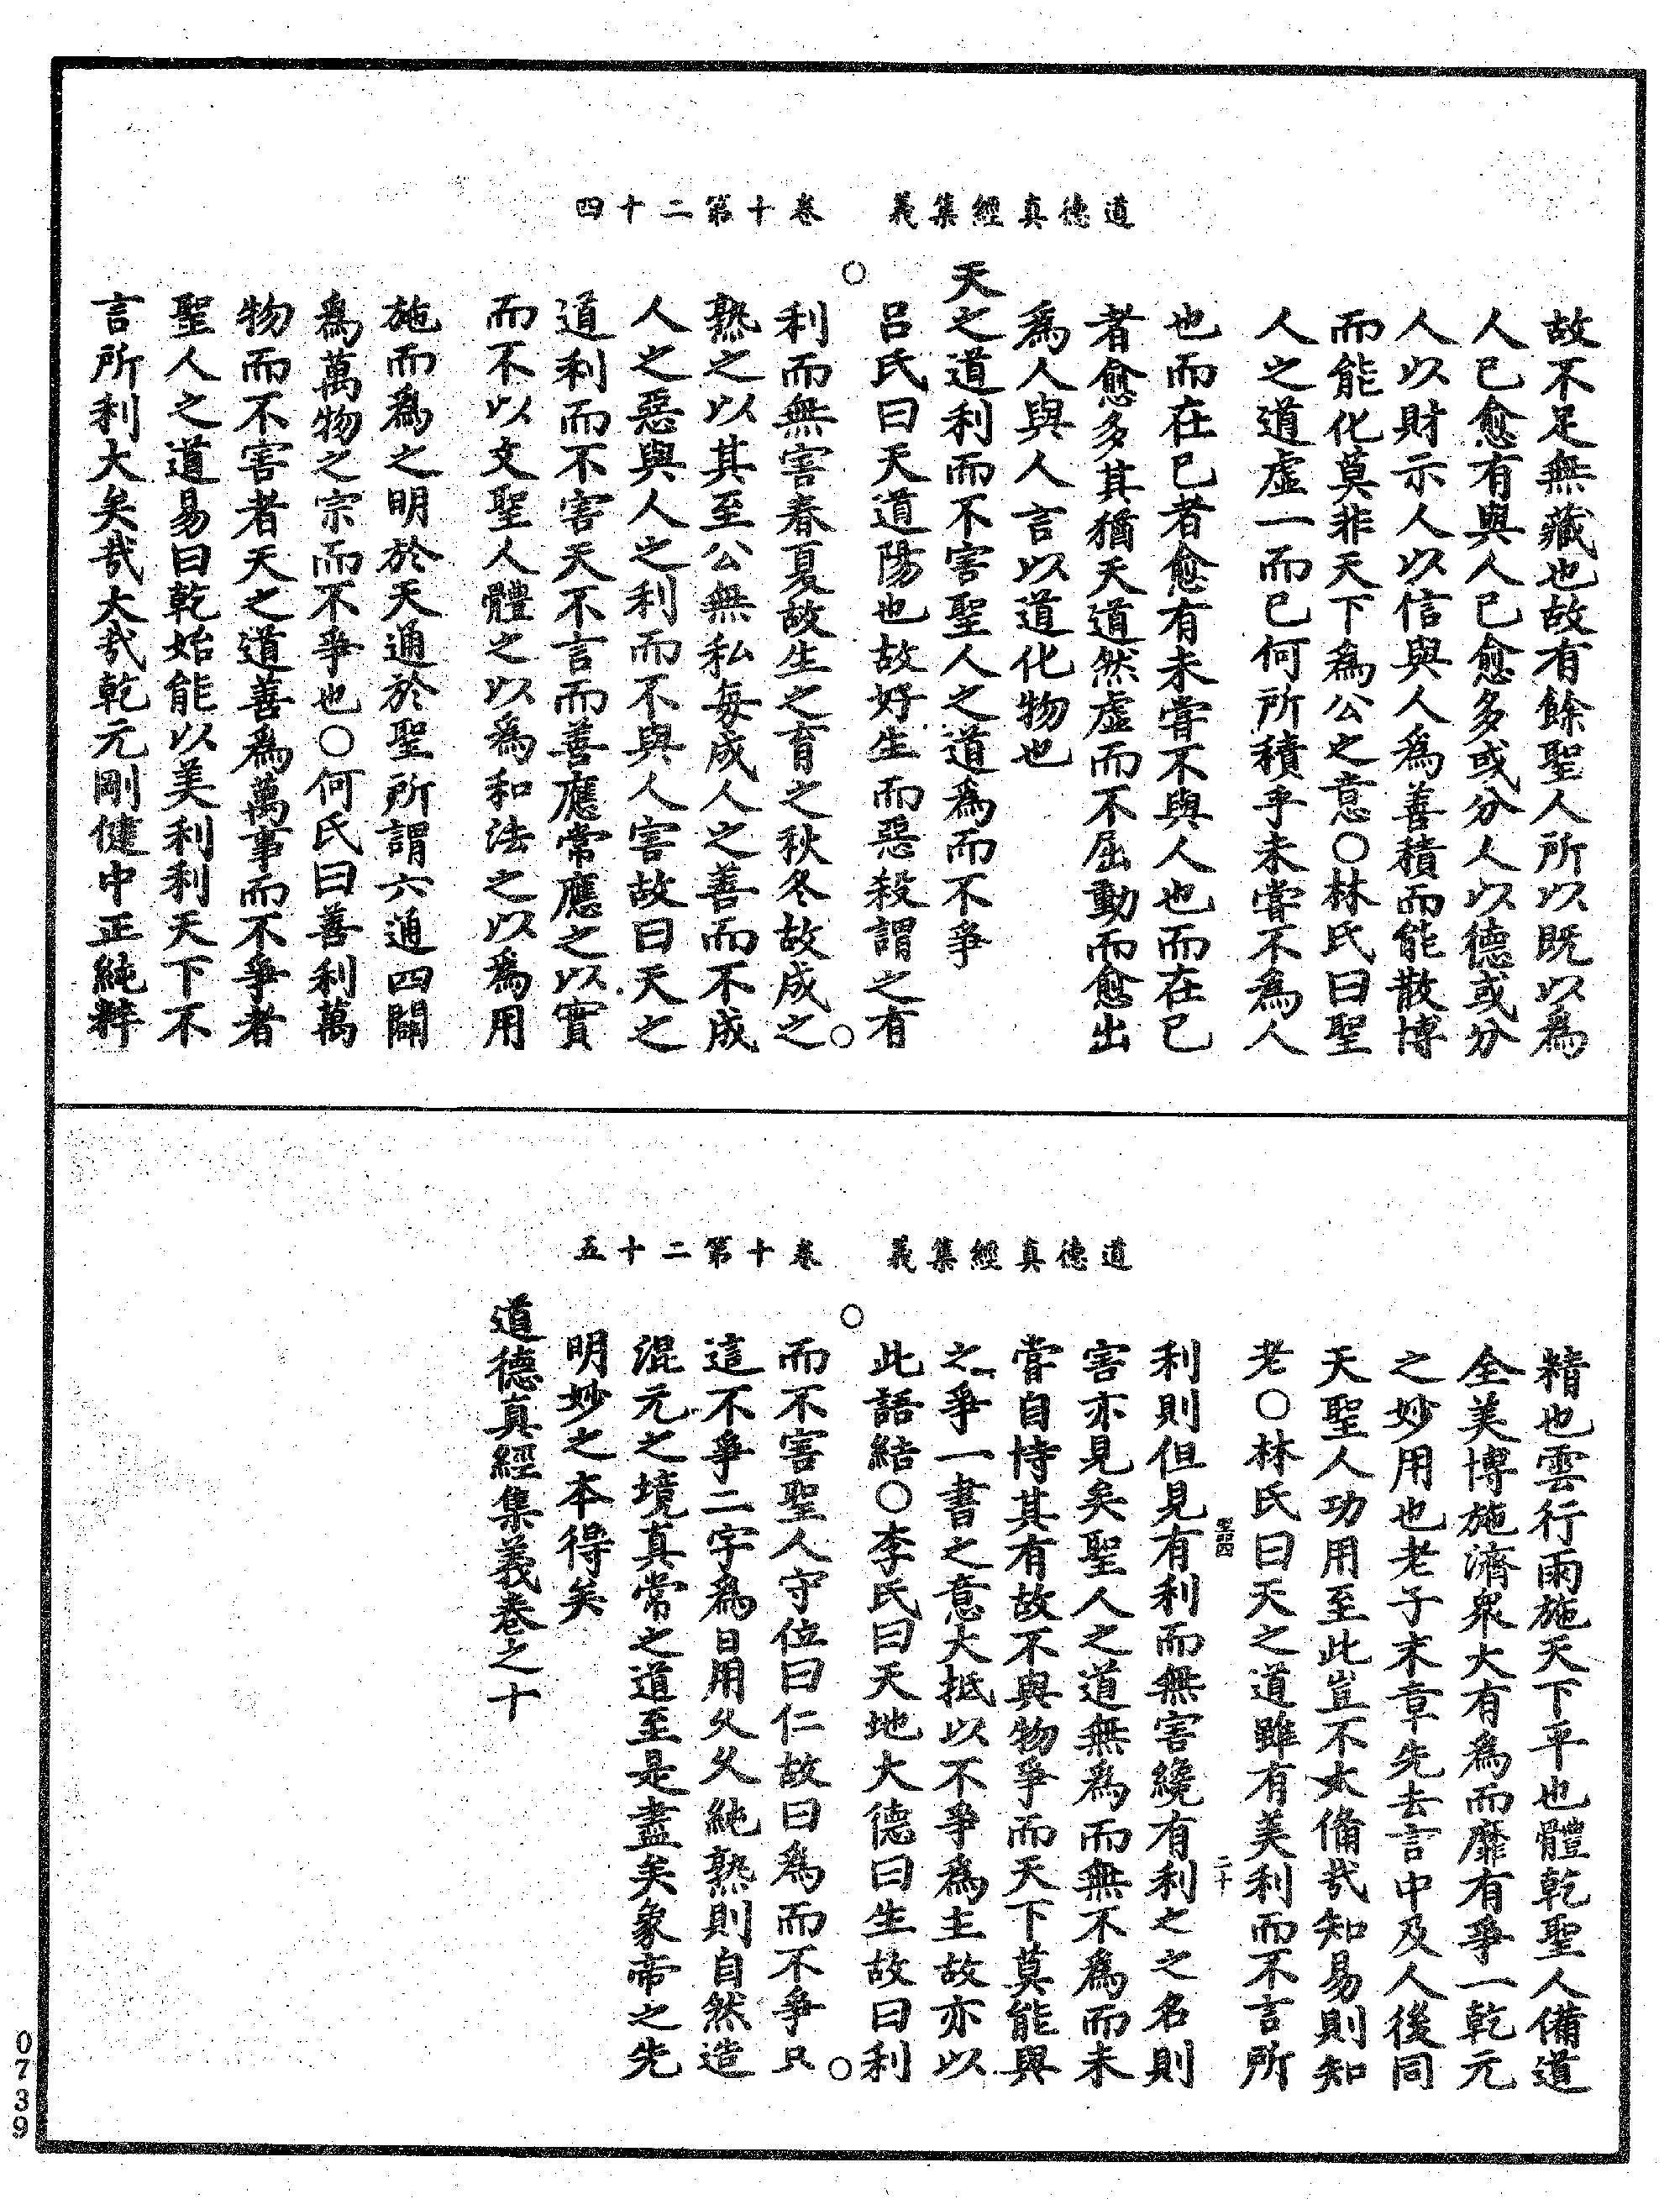 道德真經集義　卷十第二十四
故不足無藏也故有餘聖人所以既以爲
人已愈有與人已愈多或分人以德或分
人以財示人以信與人爲善積而能散博
而能化莫非天下爲公之意○林氏曰聖
人之道虛一而已何所積乎未嘗不爲人
也而在已者愈有未嘗不與人也而在已
者愈多其猶天道然虛而不屈動而愈出
爲人與人言以道化物也
天之道利而不害聖人之道爲而不爭
呂氏曰天道陽也故好生而惡殺謂之有
利而無害春夏故生之育之秋冬故成之
熟之以其至公無私每成人之善而不成
人之惡與人之利而不與人害故曰天之
道利而不害天不言而善應常應之以實
而不以文聖人體之以爲和法之以爲用
施而爲之明於天通於聖所謂六通四闢
爲萬物之宗而不爭也○何氏曰善利萬
物而不害者天之道善爲萬事而不爭者
聖人之道易曰乾始能以美利利天下不
言所利大矣哉大哉乾元剛健中正純粹
道德真經集義　卷十第二十五
精也雲行雨施天下平也體乾聖人備道
全美博施濟衆大有爲而靡有爭一乾元
之妙用也老子末章先去言中及人後同
天聖人功用至此豈不大備哉知易則知
老○林氏曰天之道雖有美利而不言所
聖四　二十
利則但見有利而無害纔有利之之名則
害亦見矣聖人之道無爲而無不爲而未
嘗自恃其有故不與物爭而天下莫能與
之爭一書之意大抵以不爭爲主故亦以
此語結○李氏曰天地大德曰生故曰利
而不害聖人守位曰仁故曰爲而不爭只
這不爭二字爲日用久久純熟則自然造
混元之境真常之道至是盡矣象帝之先
明妙之本得矣
道德真經集義卷之十
0739